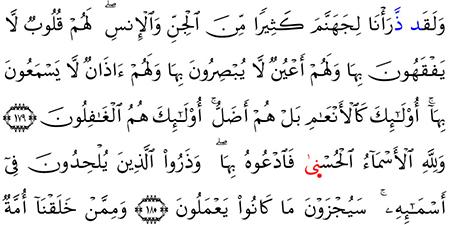 وَلَقَد ذَّرَأْنَا لِجَهَنَّمَ كَثِيرًا مِّنَ ٱلْجِنِّ وَٱلْإِنسِ ۖ لَهُمْ قُلُوبٌ لَّا
يَفْقَهُونَ بِهَا وَلَهُمْ أَعْيُنٌ لَّا يُبْصِرُونَ بِهَا وَلَهُمْ ءَاذَانٌ لَّا يَسْمَعُونَ
بِهَا ۚ أُو۟لَـٰٓئِكَ كَٱلْأَنْعَـٰمِ بَلْ هُمْ أَضَلُّ ۚ أُو۟لَـٰٓئِكَ هُمُ ٱلْغَـٰفِلُونَ ﴿١٧٩﴾
وَلِلَّهِ ٱلْأَسْمَآءُ ٱلْحُسْنَىٰ فَٱدْعُوهُ بِهَا ۖ وَذَرُوا۟ ٱلَّذِينَ يُلْحِدُونَ فِىٓ
أَسْمَـٰٓئِهِۦ ۚ سَيُجْزَوْنَ مَا كَانُوا۟ يَعْمَلُونَ ﴿١٨٠﴾ وَمِمَّنْ خَلَقْنَآ أُمَّةٌ